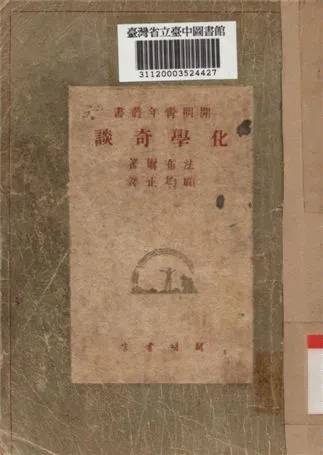 臺灣省立臺中圖書館
31120003524427
開明青年叢書
化學奇談
法布爾著
顧均正譯
開明書店